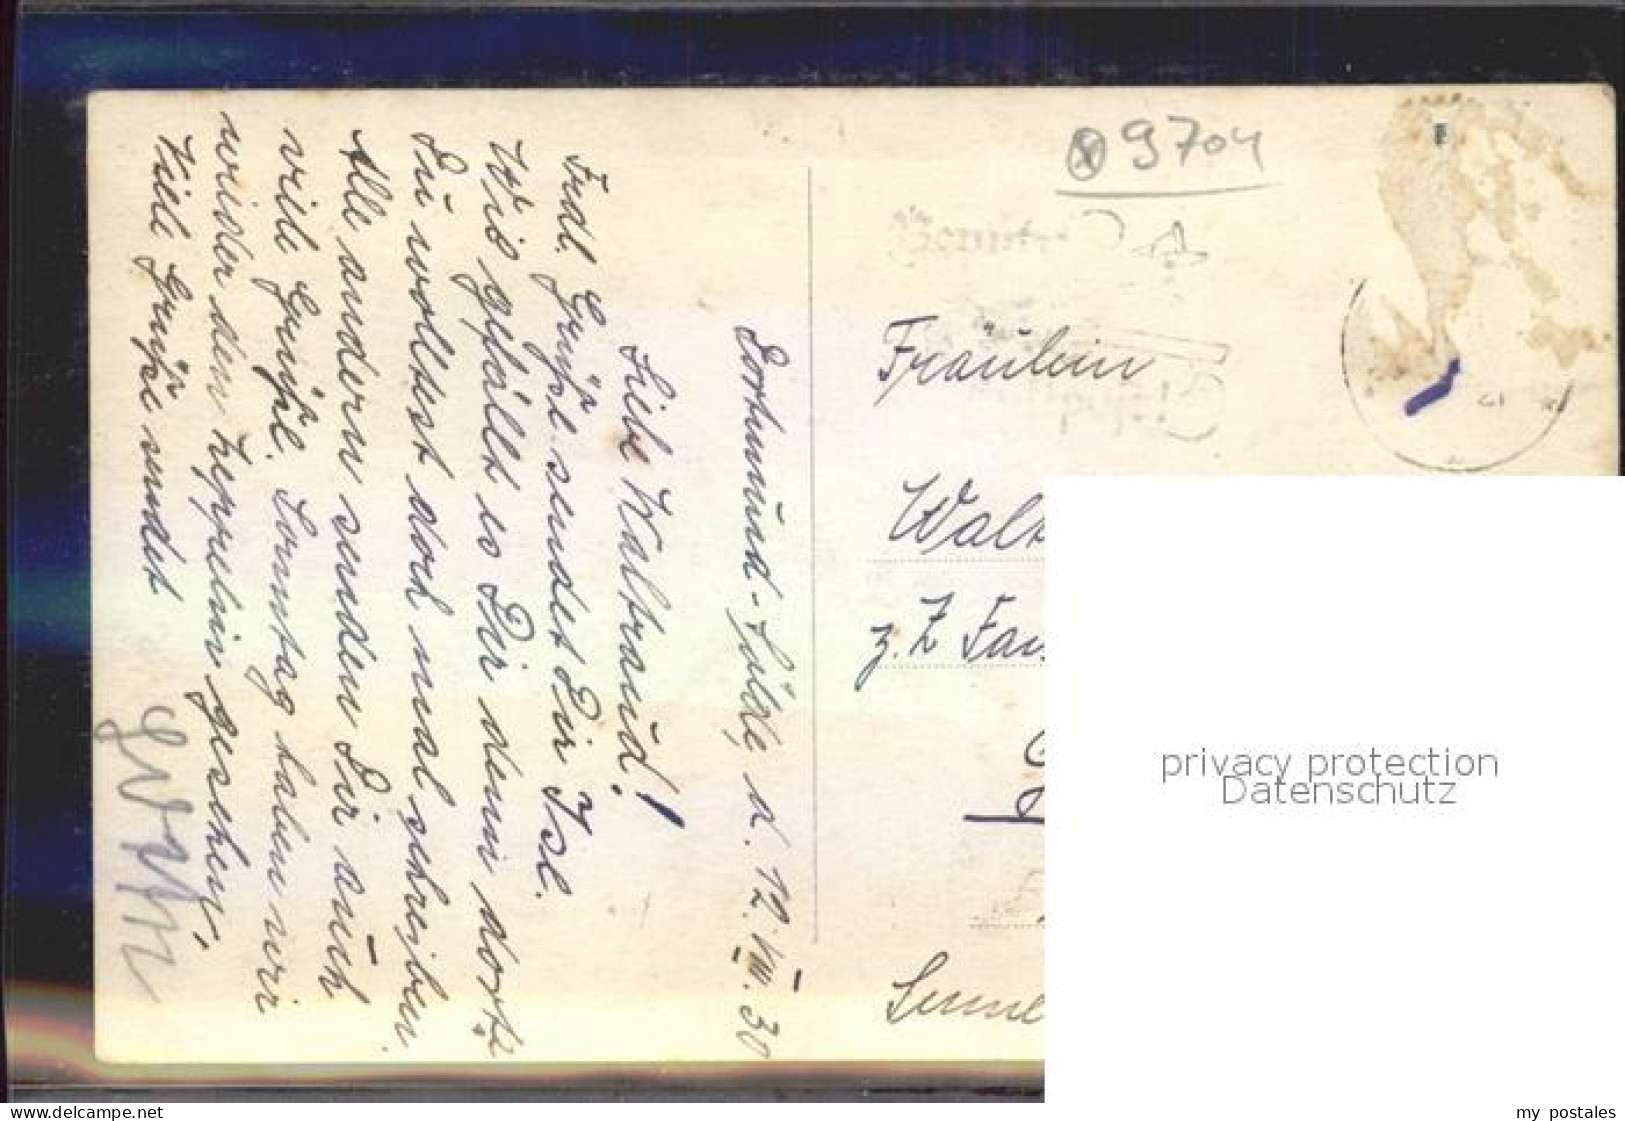 Dortmund-Sölde, d. 12. VIII. 30
Liebe Waltraud!
Frdl. Grüße sendet Dir Ise.
Wie gefällt es Dir denn dort?
Du wolltest doch mal schreiben.
Alle andern senden Dir auch
viele Grüße. Sonntag haben wir
wieder den Zeppelin gesehen,
Viele Grüße sendet
⊗ 9704
Fräulein
Walt
z. Z Fam
privacy protection
Datenschutz
www.delcampe.net
my postales